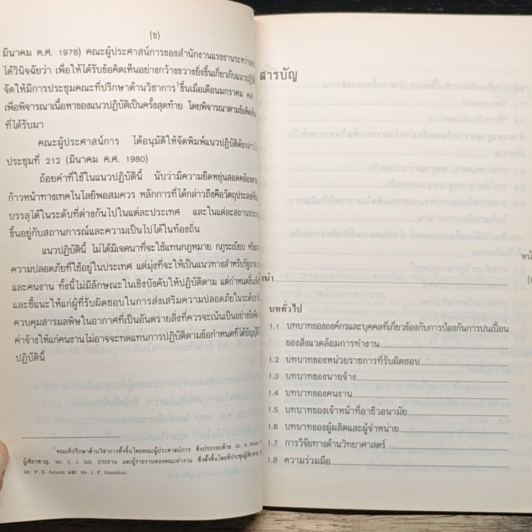 (ช)
มีนาคม ค.ศ. 1978) คณะผู้ประศาสน์การของสำนักงานแรงงานระหว่าง
ได้วินิจฉัยว่า เพื่อให้ได้รับข้อคิดเห็นอย่างกว้างขวางยิ่งขึ้นเกี่ยวกับแนวปฏิบัติ
จัดให้มีการประชุมคณะที่ปรึกษาด้านวิชาการ¹ขึ้นเมื่อเดือนมกราคม ค.ศ.
เพื่อพิจารณาเนื้อหาของแนวปฏิบัติเป็นครั้งสุดท้าย โดยพิจารณาตามข้อคิดเห็น
ที่ได้รับมา
คณะผู้ประศาสน์การ ได้อนุมัติให้จัดพิมพ์แนวปฏิบัติดังกล่าว
ประชุมที่ 212 (มีนาคม ค.ศ. 1980)
ถ้อยคำที่ใช้ในแนวปฏิบัตินี้ นับว่ามีความยืดหยุ่นสอดคล้อง
ก้าวหน้าทางเทคโนโลยีพอสมควร หลักการที่ได้กล่าวถึงคือวัตถุประสงค์
บรรลุได้ในระดับที่ต่างกันไปในแต่ละประเทศ และในแต่ละสถาน
ขึ้นอยู่กับสถานการณ์และความเป็นไปได้ในท้องถิ่น
แนวปฏิบัตินี้ ไม่ได้มีเจตนาที่จะใช้แทนกฎหมาย กฎระเบียบ
ความปลอดภัยที่ใช้อยู่ในประเทศ แต่มุ่งที่จะให้เป็นแนวทางสำหรับ
และคนงาน ทั้งนี้ไม่มีลักษณะในเชิงบังคับให้ปฏิบัติตาม แต่กำหนดขึ้น
และชี้แนะให้แก่ผู้ที่รับผิดชอบในการส่งเสริมความปลอดภัยใน
ควบคุมสารมลพิษในอากาศที่เป็นอันตรายสิ่งที่ควรจะเน้นเป็นอย่างยิ่ง
ค่าจ้างให้แก่คนงานไม่อาจจะทดแทนการปฏิบัติตามข้อกำหนดที่ได้บัญญัติ
ปฏิบัตินี้
¹คณะที่ปรึกษาด้านวิชาการตั้งขึ้นโดยคณะผู้ประศาสน์การ ซึ่งประกอบด้วย Dr. A.
ผู้เชี่ยวชาญ, Mr. ประธาน และผู้รายงานของคณะทำงาน ซึ่งตั้งขึ้นโดยที่ประชุมผู้เชี่ยวชาญ
Mr. P. E. และ Mr. J. P. Hamilton.
สารบัญ
หน้
นำ
บททั่วไป
1.1 บทบาทขององค์กรและบุคคลที่เกี่ยวข้องกับการป้องกันการปนเปื้อน
ของสิ่งแวดล้อมการทำงาน
1.2 บทบาทของหน่วยราชการที่รับผิดชอบ
1.3 บทบาทของนายจ้าง
1.4 บทบาทของคนงาน
1.5 บทบาทของเจ้าหน้าที่อาชีวอนามัย
1.6 บทบาทของผู้ผลิตและผู้จำหน่าย
1.7 การวิจัยทางด้านวิทยาศาสตร์
1.8 ความร่วมมือ